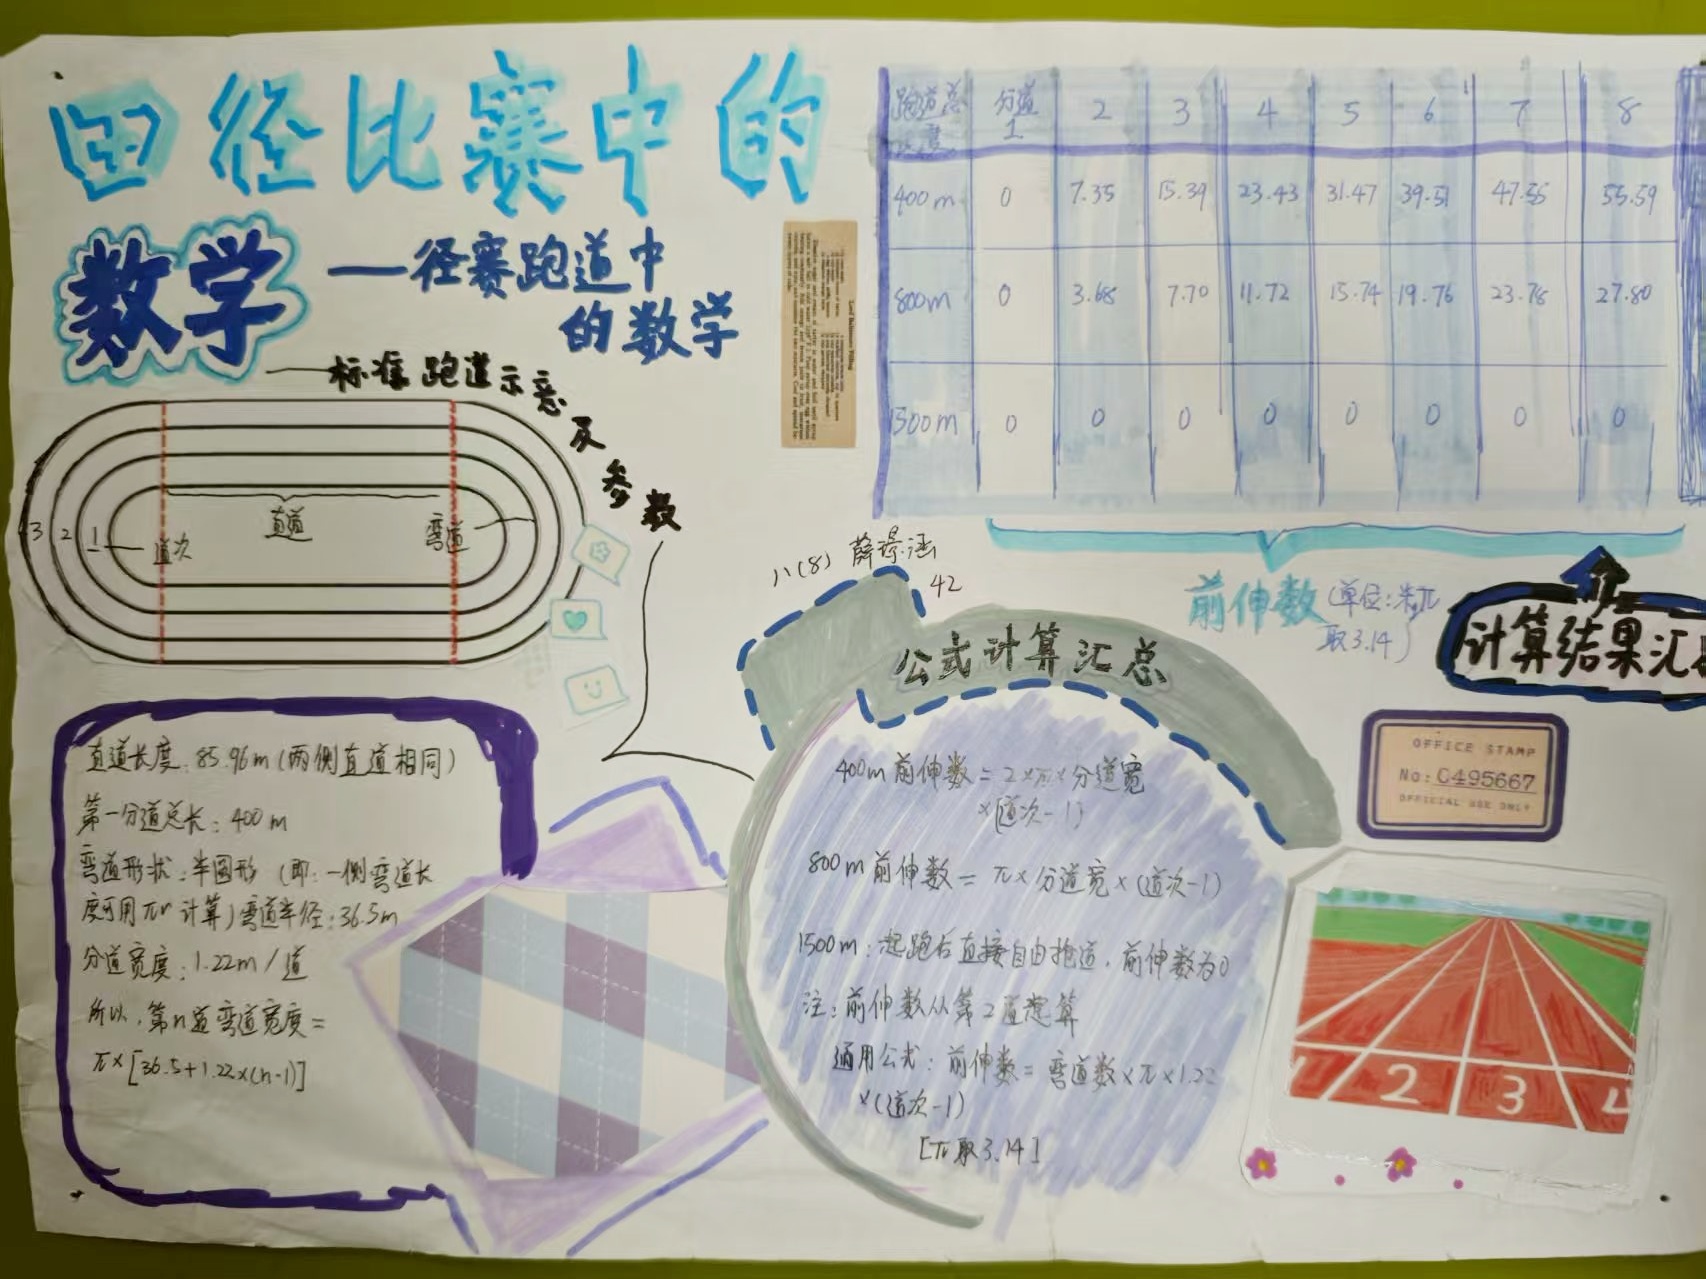 田径比赛中的
数学
——径赛跑道中
的数学
标准跑道示意及参数
3 2 1 道次 直道 弯道
跑道总长度 分道1 2 3 4 5 6 7 8
400m 0 7.35 15.39 23.43 31.47 39.51 47.55 55.59
800m 0 3.68 7.70 11.72 15.74 19.76 23.78 27.80
1500m 0 0 0 0 0 0 0 0
前伸数(单位:米,π
取3.14)
计算结果汇
八(8) 薛璟涵
42
直道长度:85.96m(两侧直道相同)
第一分道总长:400m
弯道形状:半圆形(即:一侧弯道长
度可用πr计算)弯道半径:36.5m
分道宽度:1.22m/道
所以,第n道弯道宽度=
π×[36.5+1.22×(n-1)]
公式计算汇总
400m前伸数=2×π×分道宽
×(道次-1)
800m前伸数=π×分道宽×(道次-1)
1500m:起跑后直接自由抢道,前伸数为0
注:前伸数从第2道起算
通用公式:前伸数=弯道数×π×1.22
×(道次-1)
[π取3.14]
OFFICE STAMP
No: C495667
OFFICIAL USE ONLY
1 2 3 4